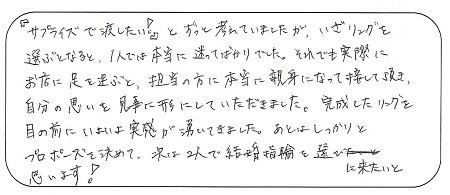 『サプライズで渡したい！』とずっと考えていましたが、いざリングを
選ぶとなると、1人では本当に迷ってばかりでした。それでも実際に
お店に足を運ぶと、担当の方に本当に親身になって接して頂き、
自分の思いを見事に形にしていただきました。完成したリングを
目の前にいよいよ実感が湧いてきました。あとはしっかりと
プロポーズを決めて、次は2人で結婚指輪を選び
に来たいと
思います！